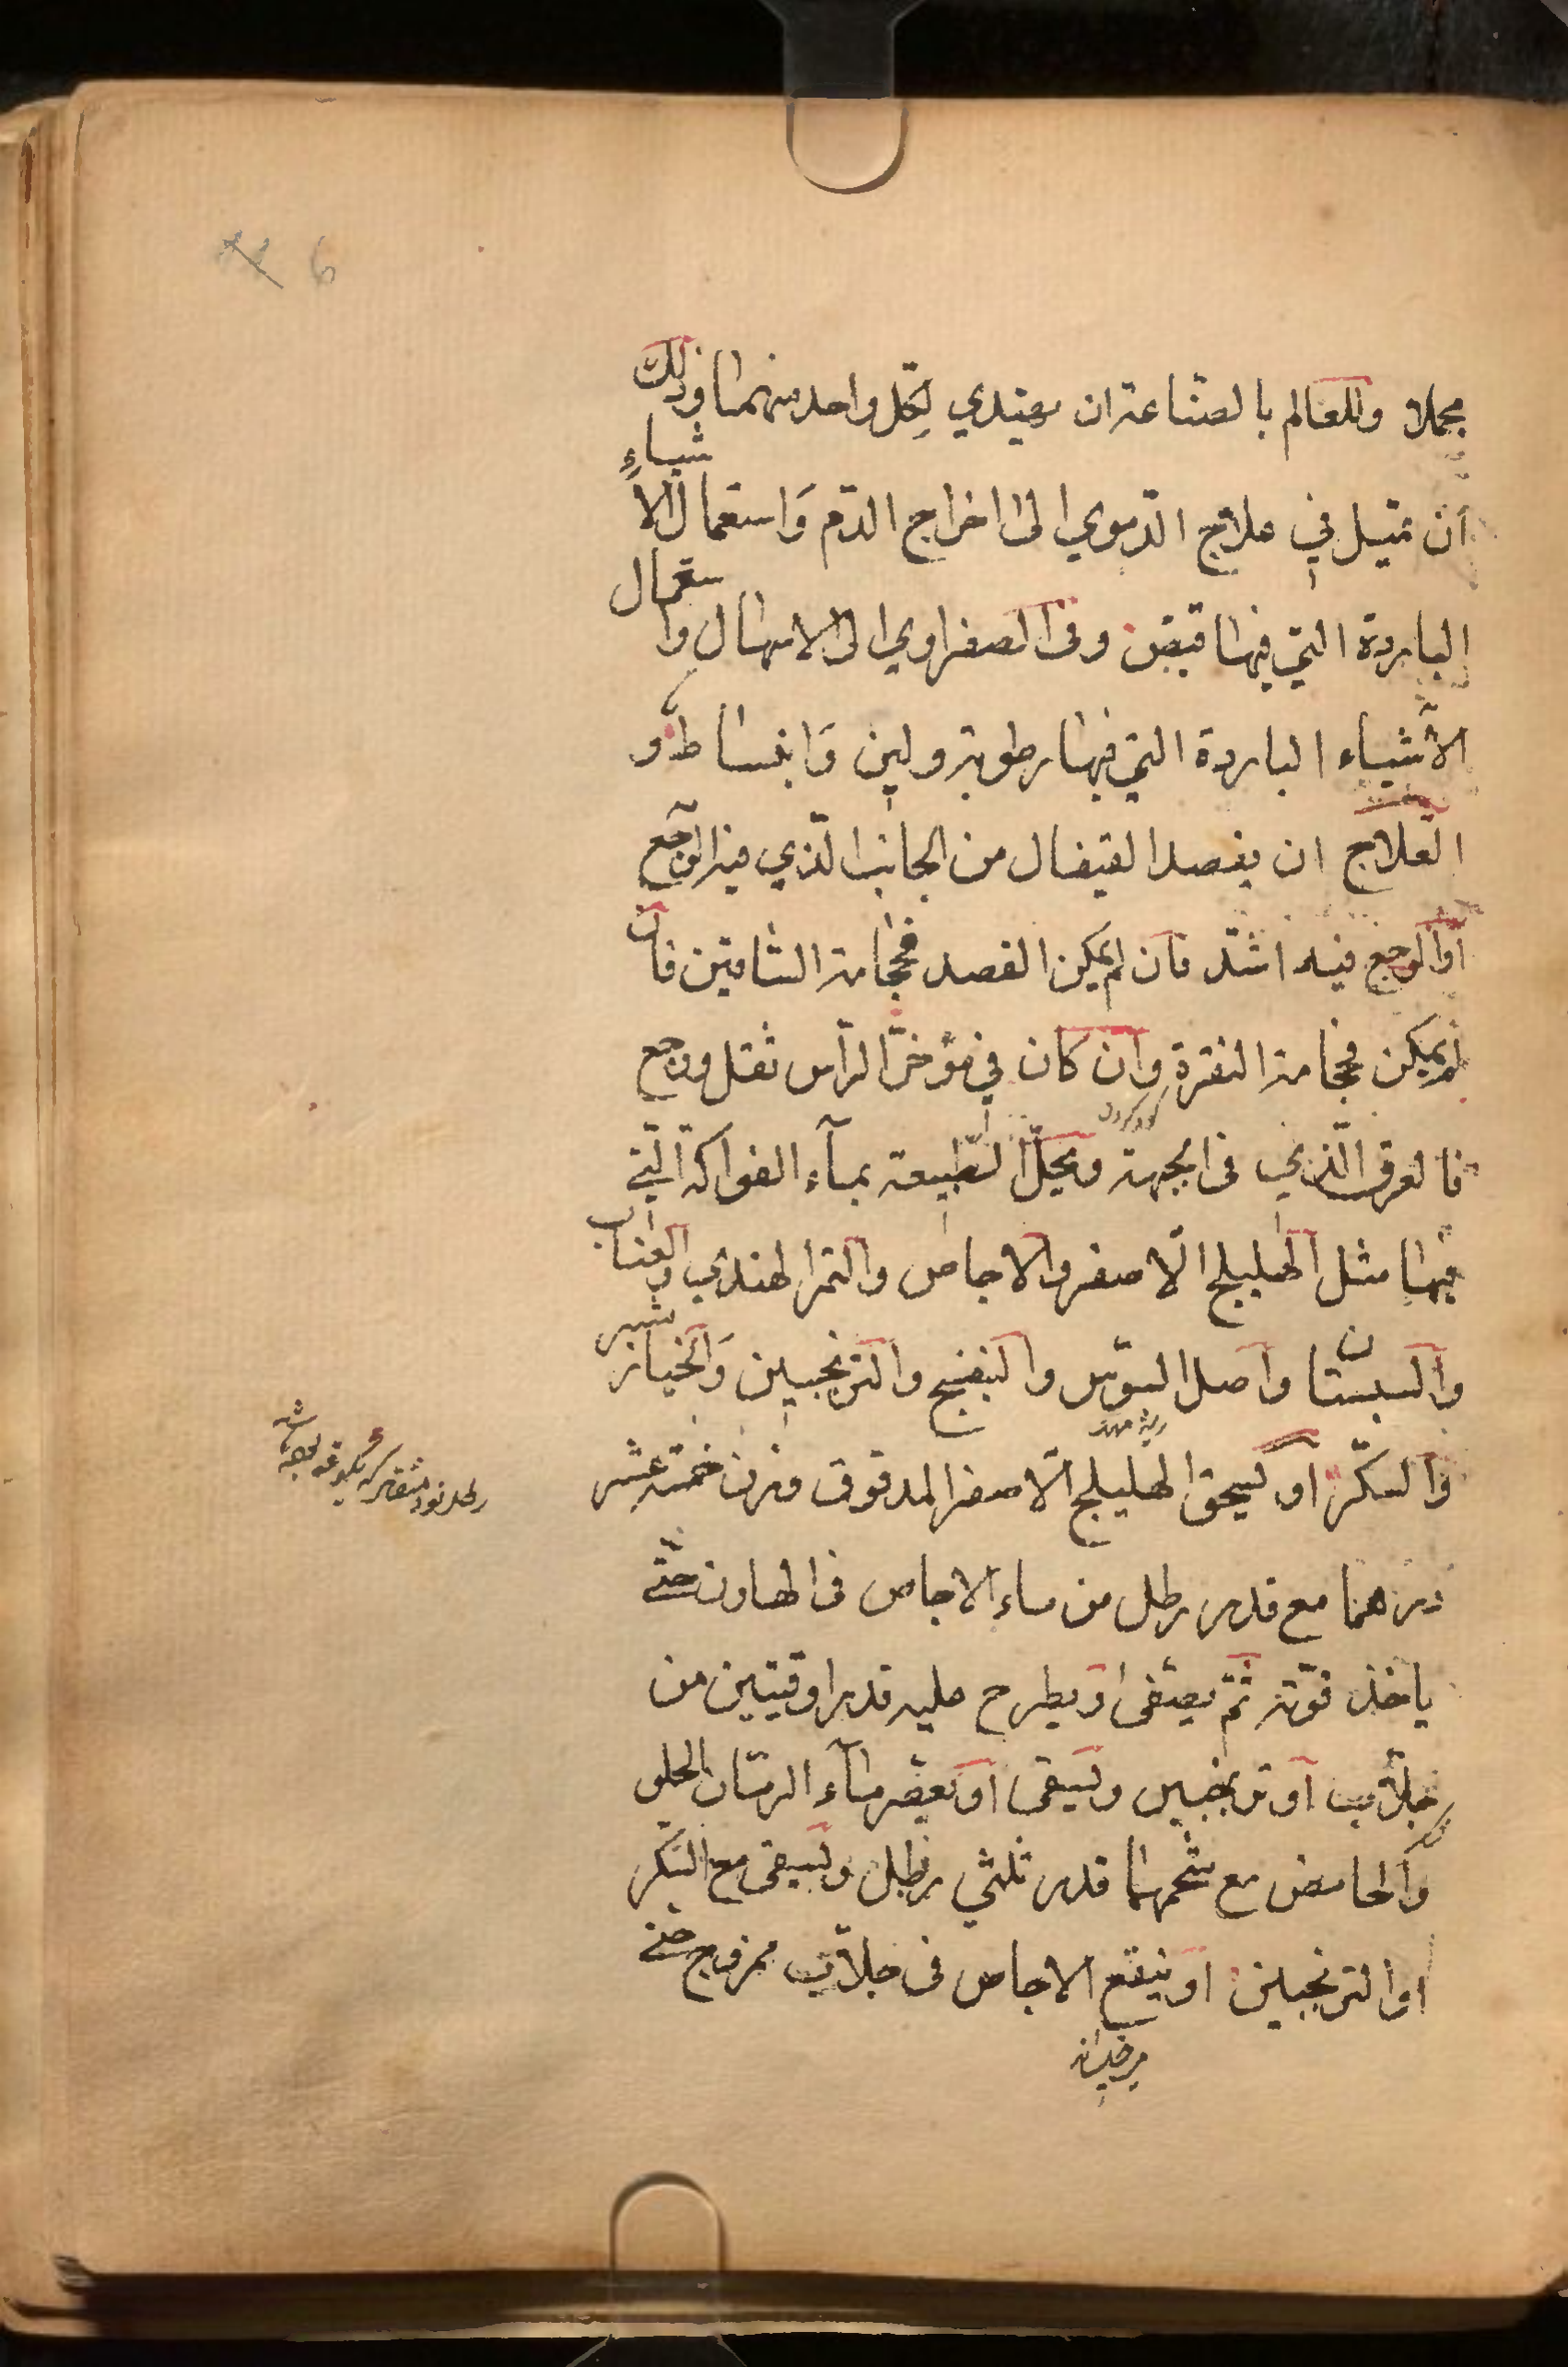 6
مجملا وللعالم بالصناعة ان يهتدي لكل واحد منهما وذلك
ان تميل في علاج الدموي الى اخراج الدم وَاستعمال الاشياءِ
الباردة التي فيها قبض وفى الصفراوي الى الاسهال واستعمال
الاشياء الباردة التي فيها رطوبة ولين وَانبساط و
العلاج ان يفصد القيفال من الجانب الذي فيه الوجع
او الوجع فيه اشدّ فان لم يمكن الفصد فحجامة الساقين فان
لم يمكن فحجامة النقرة وان كان في مؤخر الرأس ثقل ووجع
فالعرق الذي فى الجبهة ويحلّ الطبيعة بمآء الفواكه التي
فيها مثل الهليلج الاصفر والاجاص والتمر الهندي والعناب
والسبستان واصل السوس والبنفسج والترنجبين وَالخيارشنبر
والسكّر او يسحق الهليلج الاصفر المدقوق وزن خمسة عشر
درهما مع قدر رطل من ماء الاجاص فى الهاون حتّى
ياخذ قوّته ثم يصفّى ويطرح عليه قدر اوقيتين من
جلاّب او ترنجبين ويسقى او يعصر مآء الرمّان الحلو
والحامض مع شحمهما قدر ثلثي رطل ويسقى مع السكر
او الترنجبين او ينقع الاجاص فى جلاّب ممزوج حتى